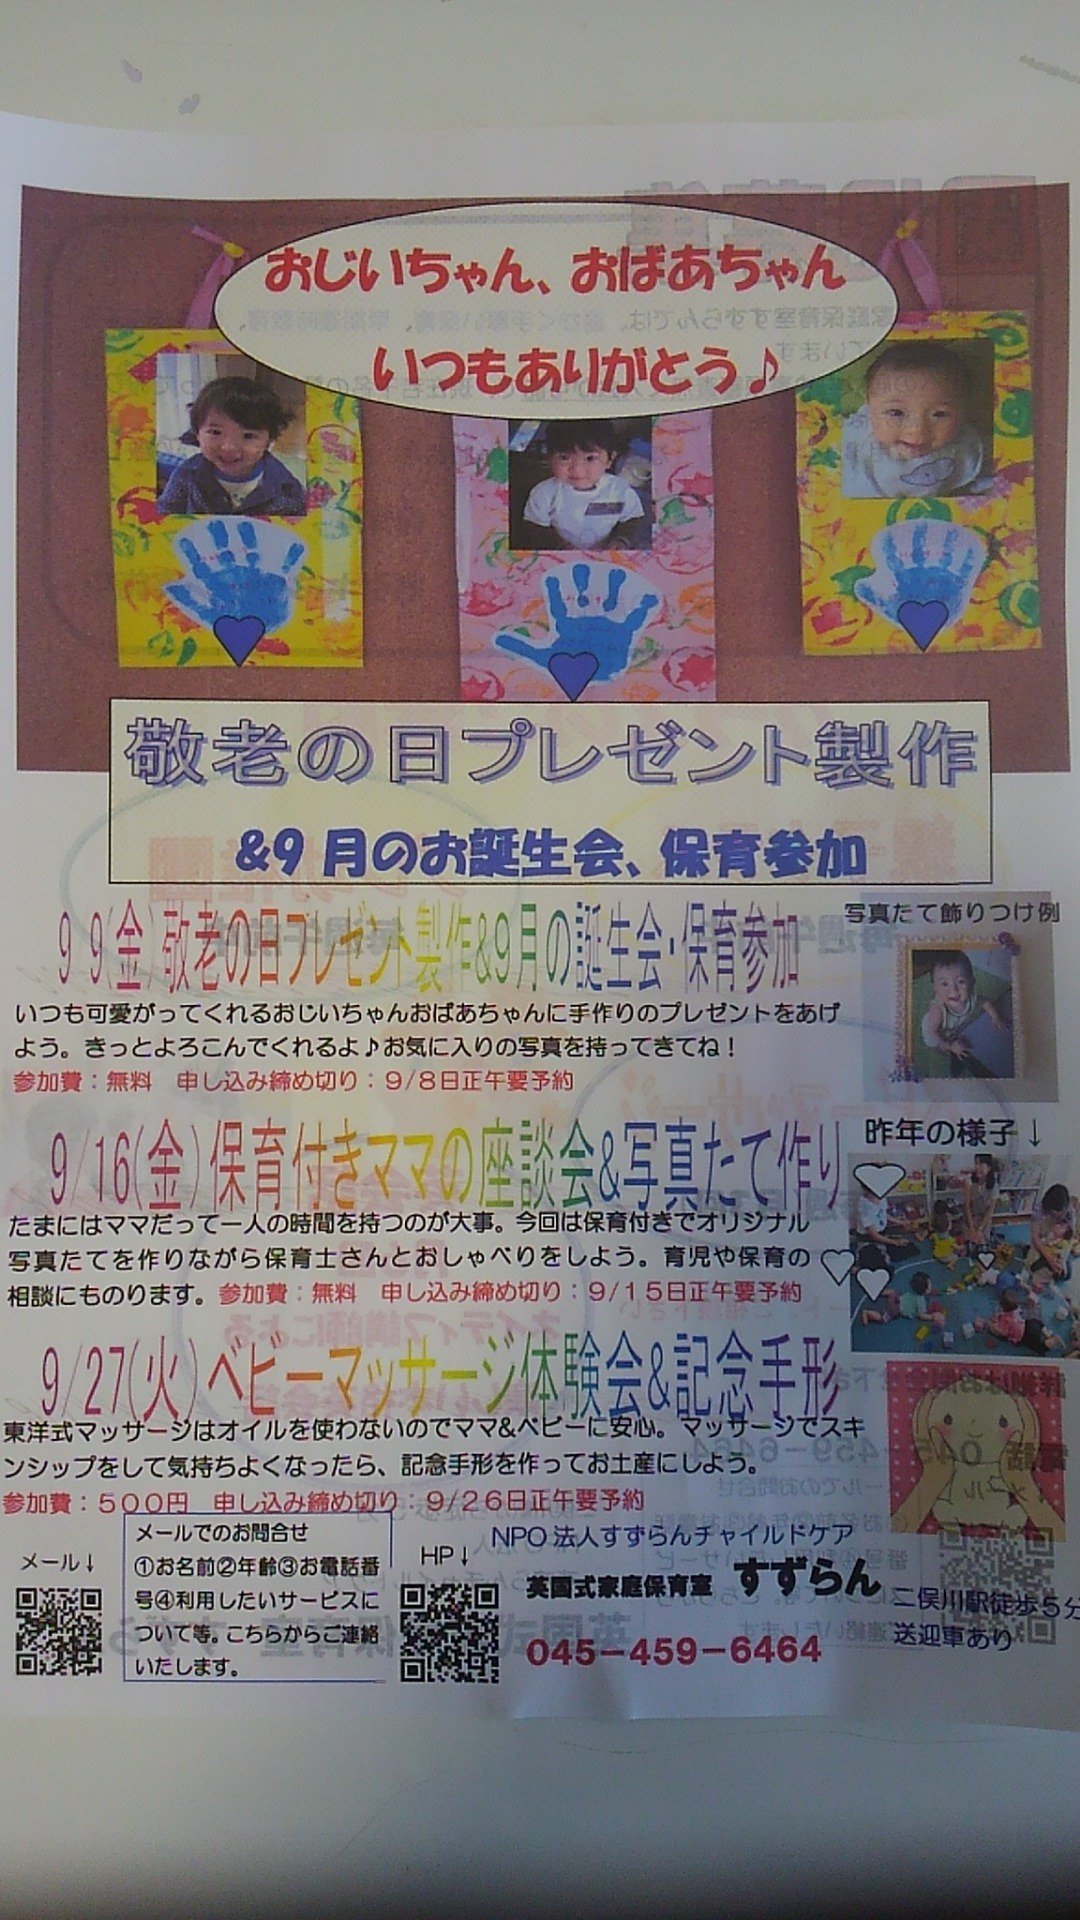 おじいちゃん、おばあちゃん
いつもありがとう♪
敬老の日プレゼント製作
&9月のお誕生会、保育参加
9 9(金)敬老の日プレゼント製作&9月の誕生会・保育参加
いつも可愛がってくれるおじいちゃんおばあちゃんに手作りのプレゼントをあげ
よう。きっとよろこんでくれるよ♪お気に入りの写真を持ってきてね!
参加費:無料 申し込み締め切り:9/8日正午要予約
写真たて飾りつけ例
9/16(金)保育付きママの座談会&写真たて作り
たまにはママだって一人の時間を持つのが大事。今回は保育付きでオリジナル
写真たてを作りながら保育士さんとおしゃべりをしよう。育児や保育の
相談にものります。参加費:無料 申し込み締め切り:9/15日正午要予約
昨年の様子↓
9/27(火)ベビーマッサージ体験会&記念手形
東洋式マッサージはオイルを使わないのでママ&ベビーに安心。マッサージでスキ
ンシップをして気持ちよくなったら、記念手形を作ってお土産にしよう。
参加費:500円 申し込み締め切り:9/26日正午要予約
メール↓
メールでのお問合せ
①お名前②年齢③お電話番
号④利用したいサービスに
ついて等。こちらからご連絡
いたします。
HP↓
NPO法人すずらんチャイルドケア
英国式家庭保育室 すずらん
045-459-6464
二俣川駅徒歩5分
送迎車あり